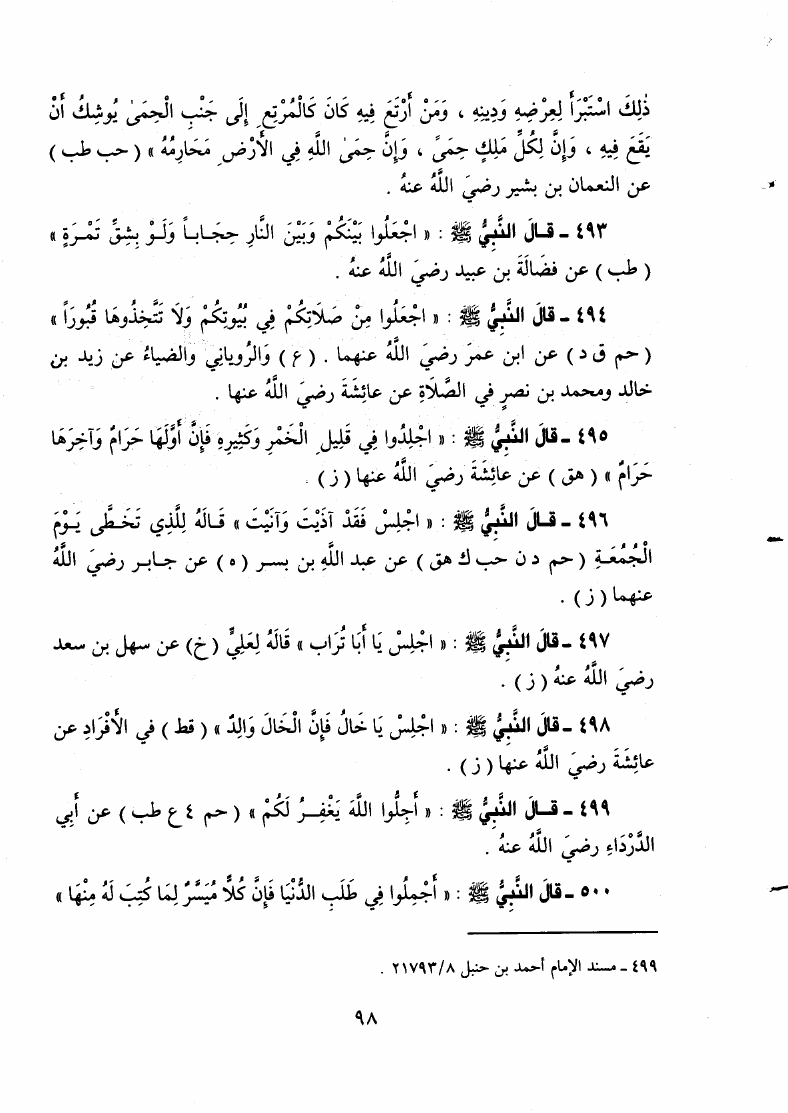 ذٰلِكَ اسْتَبْرَأَ لِعِرْضِهِ وَدِينِهِ ، وَمَنْ أَرْتَعَ فِيهِ كَانَ كَالْمُرْتِعِ إِلَى جَنْبِ الْحِمَىٰ يُوشِكُ أَنْ
يَقَعَ فِيهِ ، وَإِنَّ لِكُلِّ مَلِكٍ حِمَىً ، وَإِنَّ حِمَىٰ اللَّهِ فِي الأَرْضِ مَحَارِمُهُ » ( حب طب )
عن النعمان بن بشير رضيَ اللَّهُ عنهُ .
٤٩٣ ـ قالَ النَّبِيُّ ﷺ : « اجْعَلُوا بَيْنَكُمْ وَبَيْنَ النَّارِ حِجَاباً وَلَوْ بِشِقِّ تَمْرَةٍ »
( طب ) عن فضَالَةَ بن عبيد رضيَ اللَّهُ عنهُ .
٤٩٤ ـ قالَ النَّبِيُّ ﷺ : « اجْعَلُوا مِنْ صَلاَتِكُمْ فِي بُيُوتِكُمْ وَلاَ تَتَّخِذُوهَا قُبُوراً »
( حم ق د ) عن ابن عمرَ رضيَ اللَّهُ عنهما . ( ع ) وَالرُّويانِي وَالضياءُ عن زيد بن
خالد ومحمد بن نصرٍ في الصَّلاَةِ عن عائِشَةَ رضيَ اللَّهُ عنها .
٤٩٥ ـ قالَ النَّبِيُّ ﷺ : « اجْلِدُوا فِي قَلِيلِ الْخَمْرِ وَكَثِيرِهِ فَإِنَّ أَوَّلَهَا حَرَامٌ وَآخِرَهَا
حَرَامٌ » ( هق ) عن عائِشَةَ رضيَ اللَّهُ عنها ( ز ) .
٤٩٦ ـ قالَ النَّبِيُّ ﷺ : « اجْلِسْ فَقَدْ آذَيْتَ وَآنَيْتَ » قَالَهُ لِلَّذِي تَخَطَّى يَوْمَ
الْجُمُعَةِ ( حم د ن حب ك هق ) عن عبد اللَّهِ بن بسر ( ه ) عن جابر رضيَ اللَّهُ
عنهما ( ز ) .
٤٩٧ ـ قالَ النَّبِيُّ ﷺ : « اجْلِسْ يَا أَبَا تُرَاب » قَالَهُ لِعَلِيٍّ ( خ ) عن سهل بن سعد
رضيَ اللَّهُ عنهُ ( ز ) .
٤٩٨ ـ قالَ النَّبِيُّ ﷺ : « اجْلِسْ يَا خَالُ فَإِنَّ الْخَالَ وَالِدٌ » ( قط ) في الأَفْرَادِ عن
عائِشَةَ رضيَ اللَّهُ عنها ( ز ) .
٤٩٩ ـ قالَ النَّبِيُّ ﷺ : « أَجِلُّوا اللَّهَ يَغْفِرْ لَكُمْ » ( حم ٤ ع طب ) عن أَبي
الدَّرْدَاءِ رضيَ اللَّهُ عنهُ .
٥٠٠ ـ قالَ النَّبِيُّ ﷺ : « أَجْمِلُوا فِي طَلَبِ الدُّنْيَا فَإِنَّ كُلاًّ مُيَسَّرٌ لِمَا كُتِبَ لَهُ مِنْهَا »
٤٩٩ ـ مسند الإمام أحمد بن حنبل ٢١٧٩٣/٨ .
٩٨